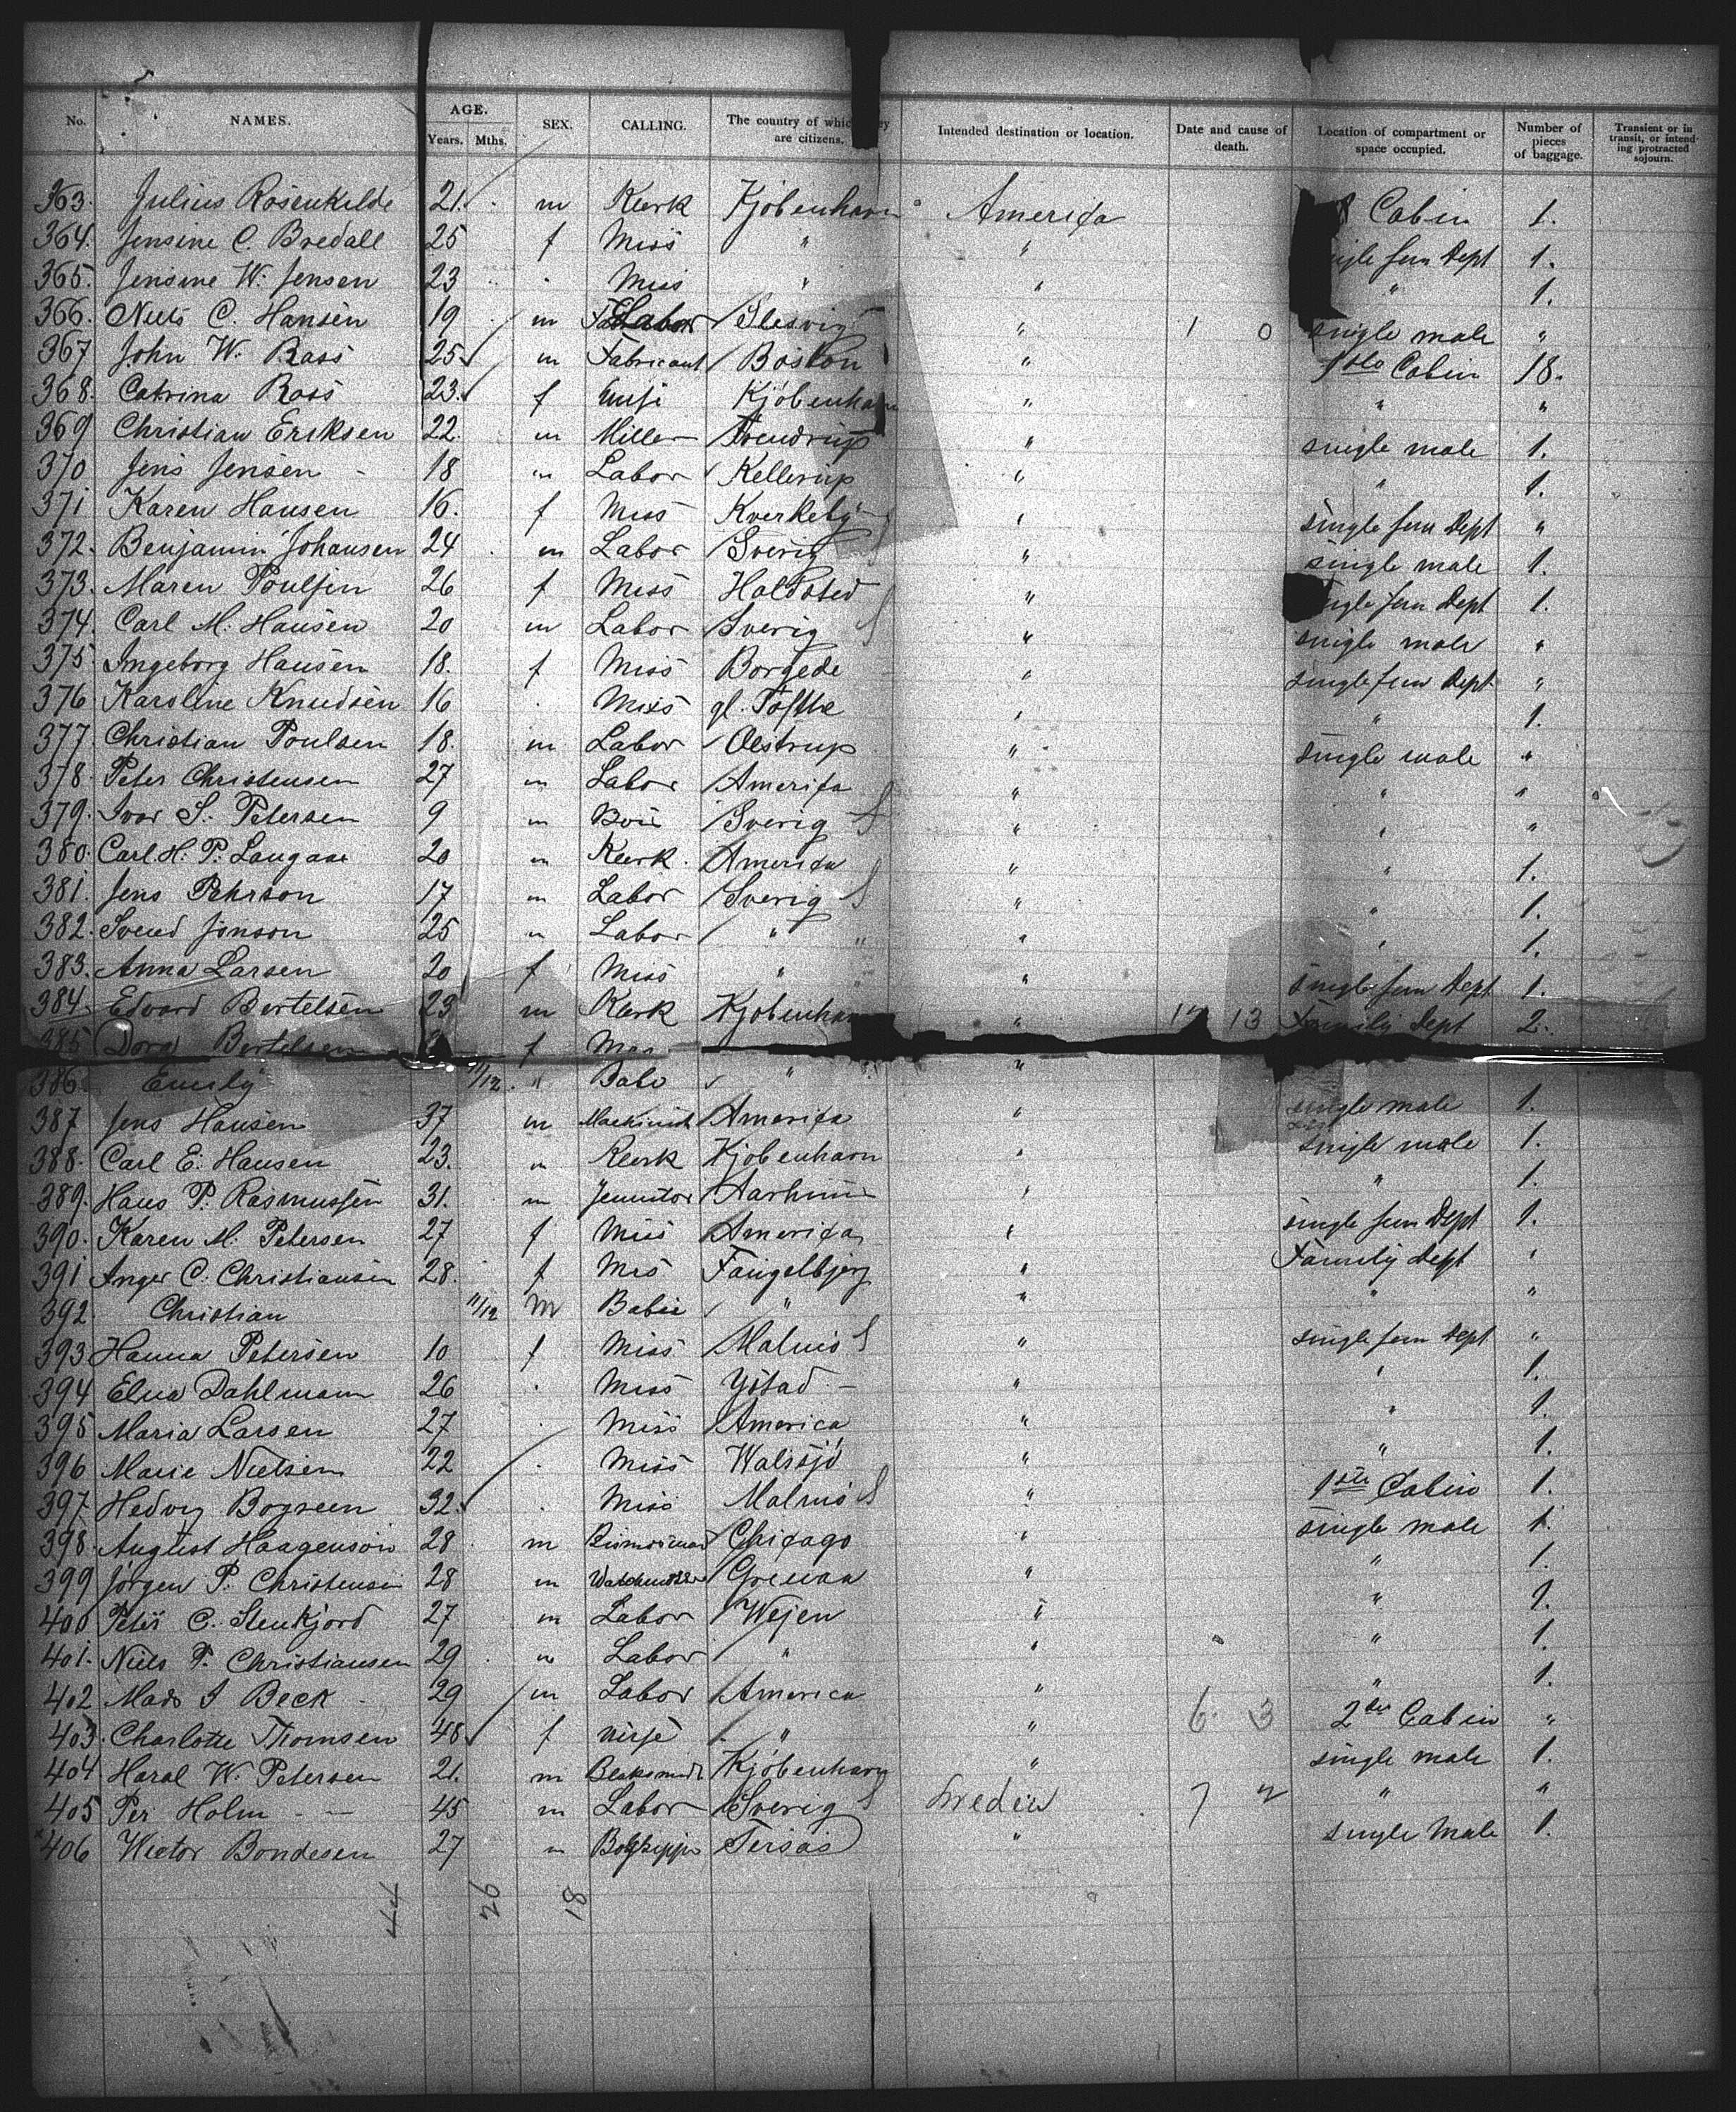 No. NAMES. AGE. Years. Mths. SEX. CALLING. The country of which they are citizens. Intended destination or location. Date and cause of death. Location of compartment or space occupied. Number of pieces of baggage. Transient or in transit, or intending protracted sojourn.
363. Julius Rosenkilde 21. m Klerk Kjöbenhavn America Cabin 1.
364. Jensine C. Bredall 25 f Miss " " fem Dept 1.
365. Jensine W. Jensen 23 Miss " " " 1.
366. Niels C. Hansen 19 m Labor Slesvig " 1 0 single male "
367 John W. Bass 25 m Fabricant Boston " 1ste Cabin 18.
368. Catrina Bass 23. f Kjöbenhavn " " "
369 Christian Eriksen 22. m Miller " single male 1.
370 Jens Jensen 18 " Labor Kellerup " " 1.
371 Karen Hansen 16. f Miss Kverkeby " single fem Dept "
372. Benjamin Johansen 24 m Labor Sverig " single male 1.
373. Maren Pouljen 26 f Miss Halsted " single fem Dept 1.
374. Carl M. Hansen 20 m Labor Sverig S " single male "
375 Ingeborg Hansen 18. f Miss Borgede " single fem Dept "
376 Karoline Knudsen 16 Miss gl. Tofthe " " 1.
377. Christian Poulsen 18. m Labor Olstrup " single male "
378. Peter Christensen 27 m Labor America " " "
379. Ivar S. Petersen 9 m Boie Sverig S " " "
380. Carl H. P. Langaae 20 m Klerk. America " " 1.
381. Jens Pehrson 17 m Labor Sverig S " " 1.
382. Svend Jönson 25 " Labor " " " " 1.
383. Anna Larsen 20 f Miss " " " single fem Dept 1.
384. Edvard Bertelsen 23 m Klerk Kjöbenhavn " 13 Family Dept 2.
385 Dora Bertelsen f
386. Emily 11/12. " " "
387 Jens Hansen 37 m Machinist America " single male 1.
388. Carl E. Hansen 23. " Klerk Kjöbenhavn " single male 1.
389. Hans P. Rasmussen 31. m Aarhuus " " 1.
390. Karen M. Petersen 27 f Miss America " single fem Dept 1.
391 Inger C. Christiansen 28. f Mrs Fangelbjerg " Family Dept "
392. Christian 11/12 M Babie " " " "
393 Hanna Petersen 10 f Miss Malmö S " single fem Dept "
394 Elna Dahlmann 26 Miss Ystad - " " 1.
395 Maria Larsen 27 Miss America " " 1.
396 Marie Nielsen 22 Miss " " 1.
397 Hedvig Bogreen 32. Miss Malmö S " 1ste Cabin 1.
398. August Haagenson 28 m Chicago " single male 1.
399 Jörgen P. Christensen 28 m Grenaa " " 1.
400 Peter C. Stenkjord 27 m Labor Wejen " " 1.
401. Niels P. Christiansen 29 m Labor " " " 1.
402 Mads J Beck 29 m Labor America " " 1.
403. Charlotte Thomsen 48 f " " 6 3 2den Cabin "
404 Haral W. Petersen 21. m Blaksmed Kjöbenhavn " single male 1.
405 Per Holm - - 45 m Labor Sverig S Sweden 7 2 " "
406 Wictor Bondesen 27 " " single Male 1.
44 92 81